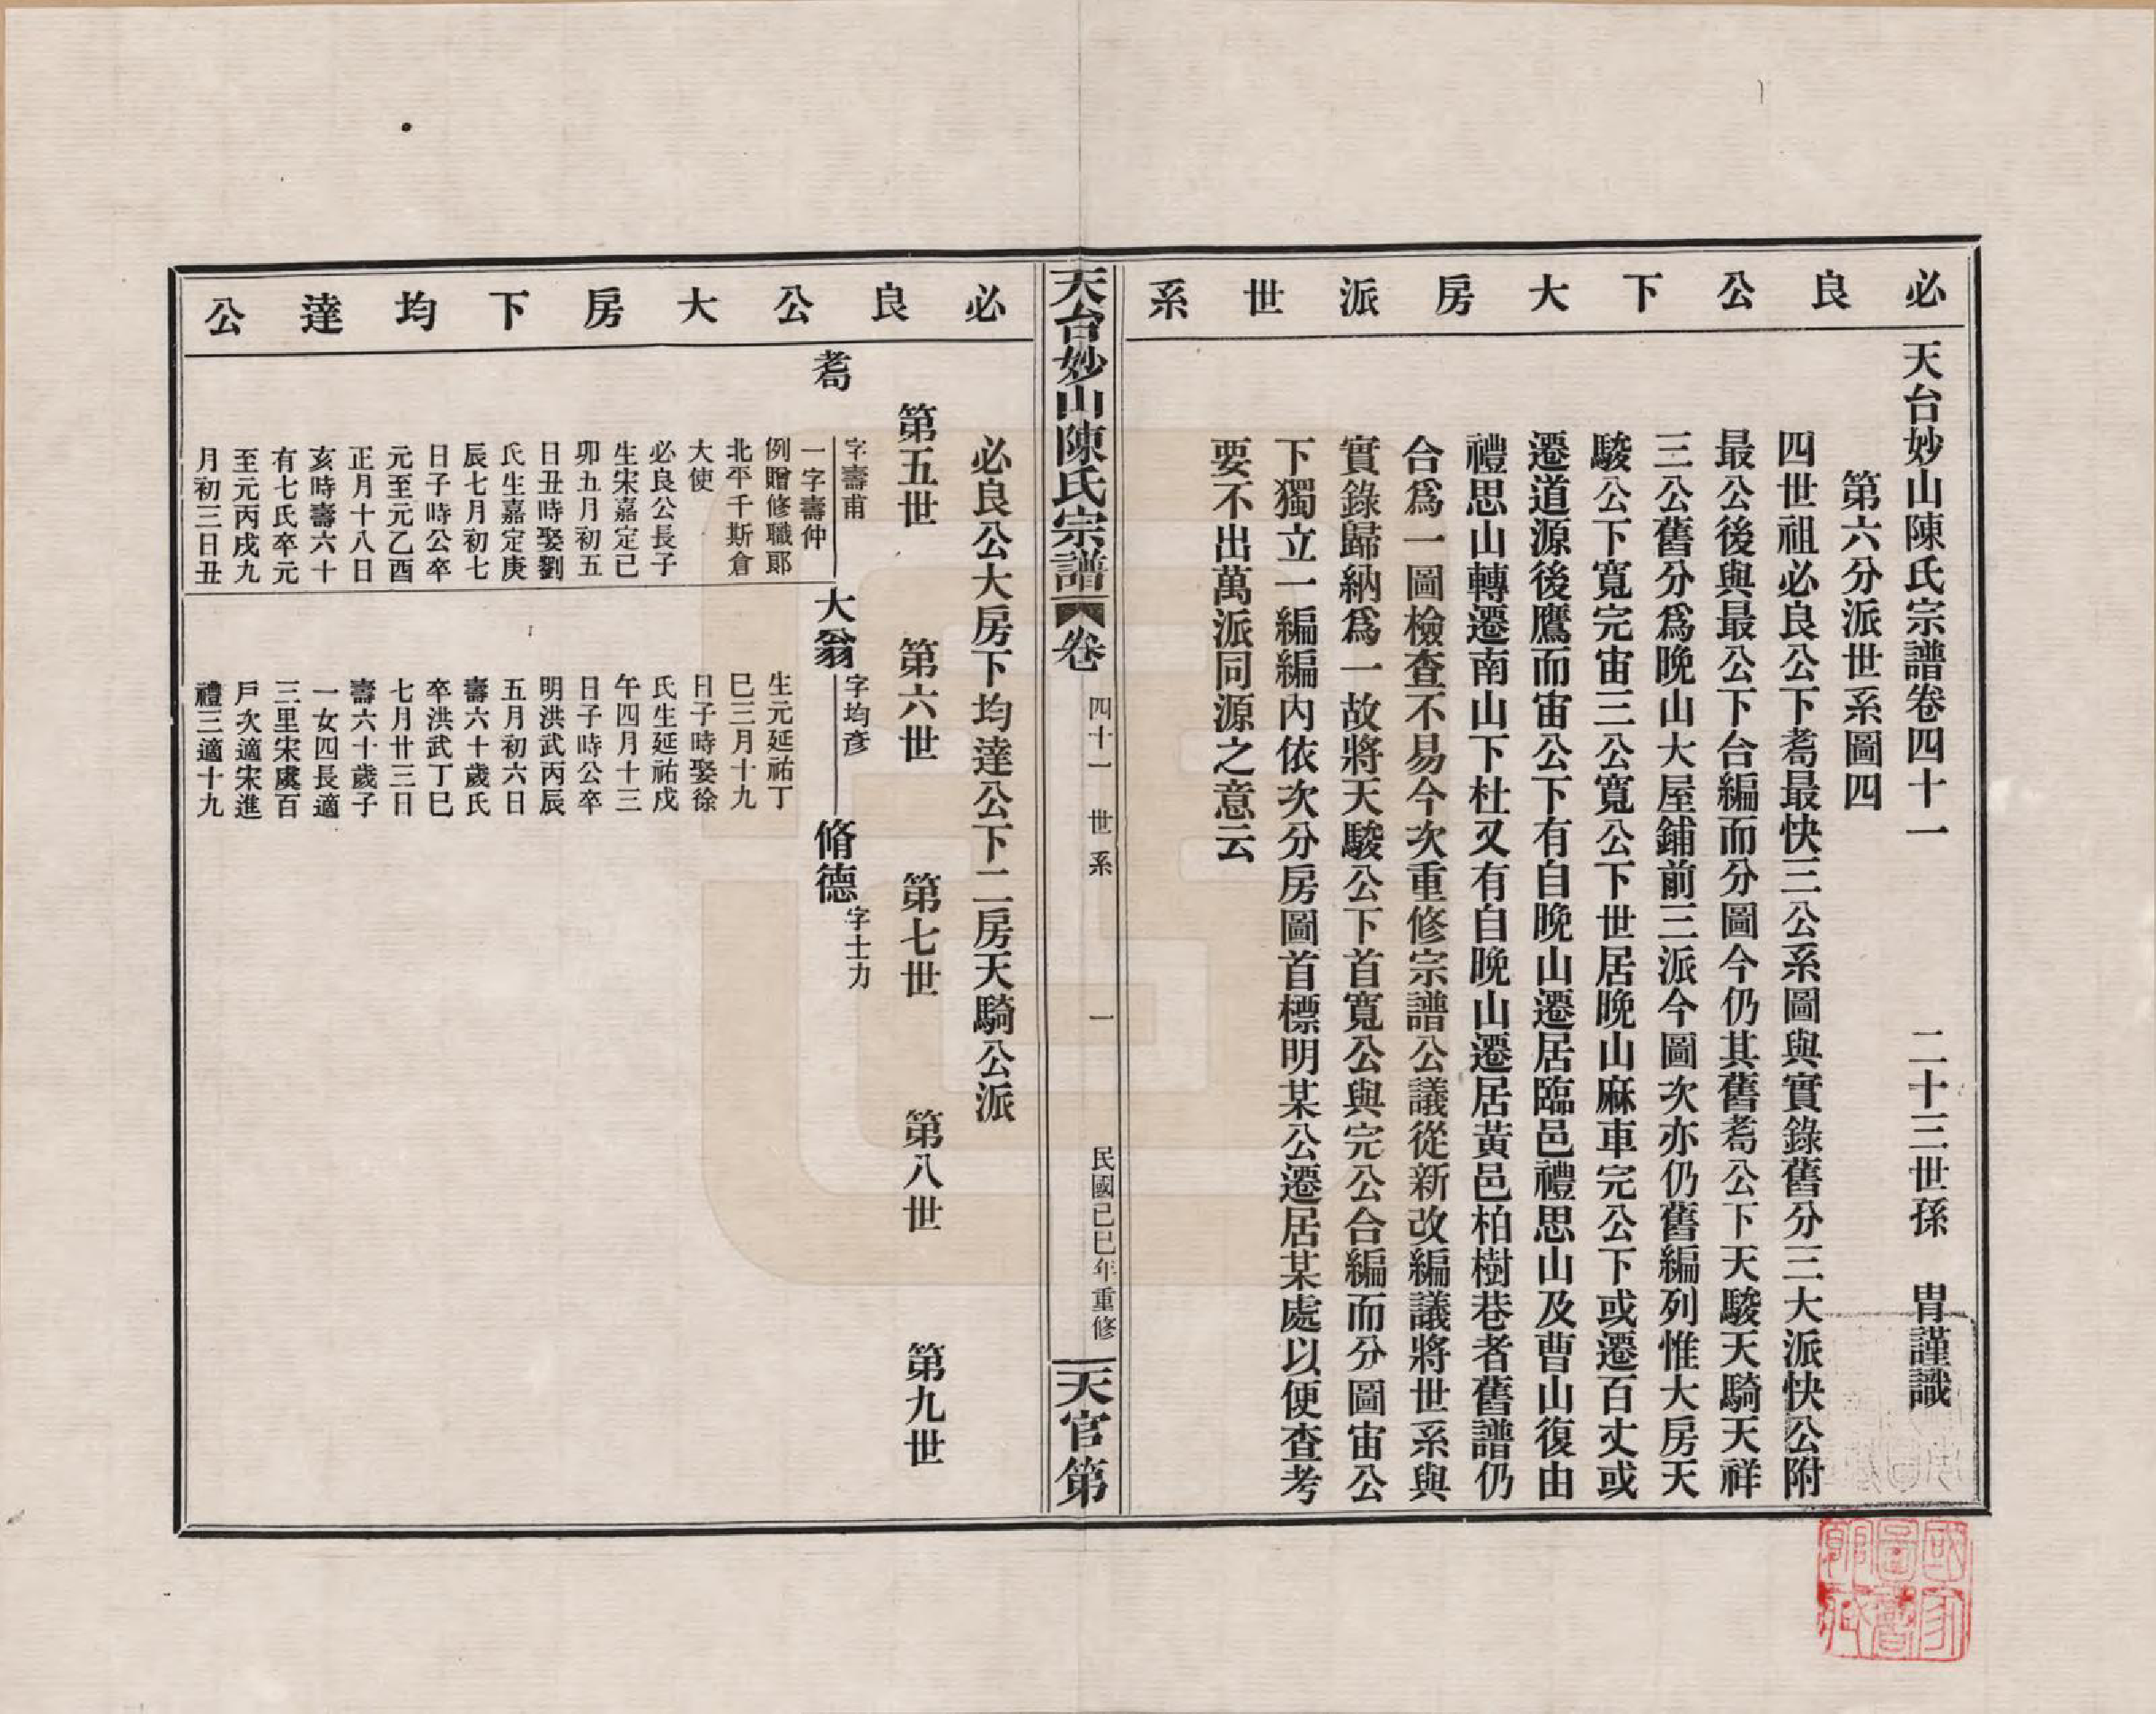 必良公下大房派世系
天台妙山陳氏宗譜卷四十一　二十三世孫　冑謹識
第六分派世系圖四
四世祖必良公下耈最快三公系圖與實錄舊分三大派快公附
最公後與最公下台編而分圖今仍其舊耈公下天駿天騎天祥
三公舊分爲晚山大屋鋪前三派今圖次亦仍舊編列惟大房天
駿公下寬完宙三公寬公下世居晚山麻車完公下或遷百丈或
遷道源後鷹而宙公下有自晚山遷居臨邑禮思山及曹山復由
禮思山轉遷南山下杜又有自晚山遷居黃邑柏樹巷者舊譜仍
合爲一圖檢查不易今次重修宗譜公議從新改編議將世系與
實錄歸納爲一故將天駿公下首寬公與完公合編而分圖宙公
下獨立一編編內依次分房圖首標明某公遷居某處以便查考
要不出萬派同源之意云
天台妙山陳氏宗譜　卷　四十一　世系　一　民國己巳年重修　天官第
必良公大房下均達公
必良公大房下均達公下二房天騎公派
第五世　第六世　第七世　第八世　第九世
耈
字壽甫
一字壽仲
例贈修職郞
北平千斯倉
大使
必良公長子
生宋嘉定己
卯五月初五
日丑時娶劉
氏生嘉定庚
辰七月初七
日子時公卒
元至元乙酉
正月十八日
亥時壽六十
有七氏卒元
至元丙戌九
月初三日丑
大翁
字均彥
生元延祐丁
巳三月十九
日子時娶徐
氏生延祐戊
午四月十三
日子時公卒
明洪武丙辰
五月初六日
壽六十歲氏
卒洪武丁巳
七月廿三日
壽六十歲子
一女四長適
三里宋處百
戶次適宋進
禮三適十九
脩德
字士力
國家圖書館藏